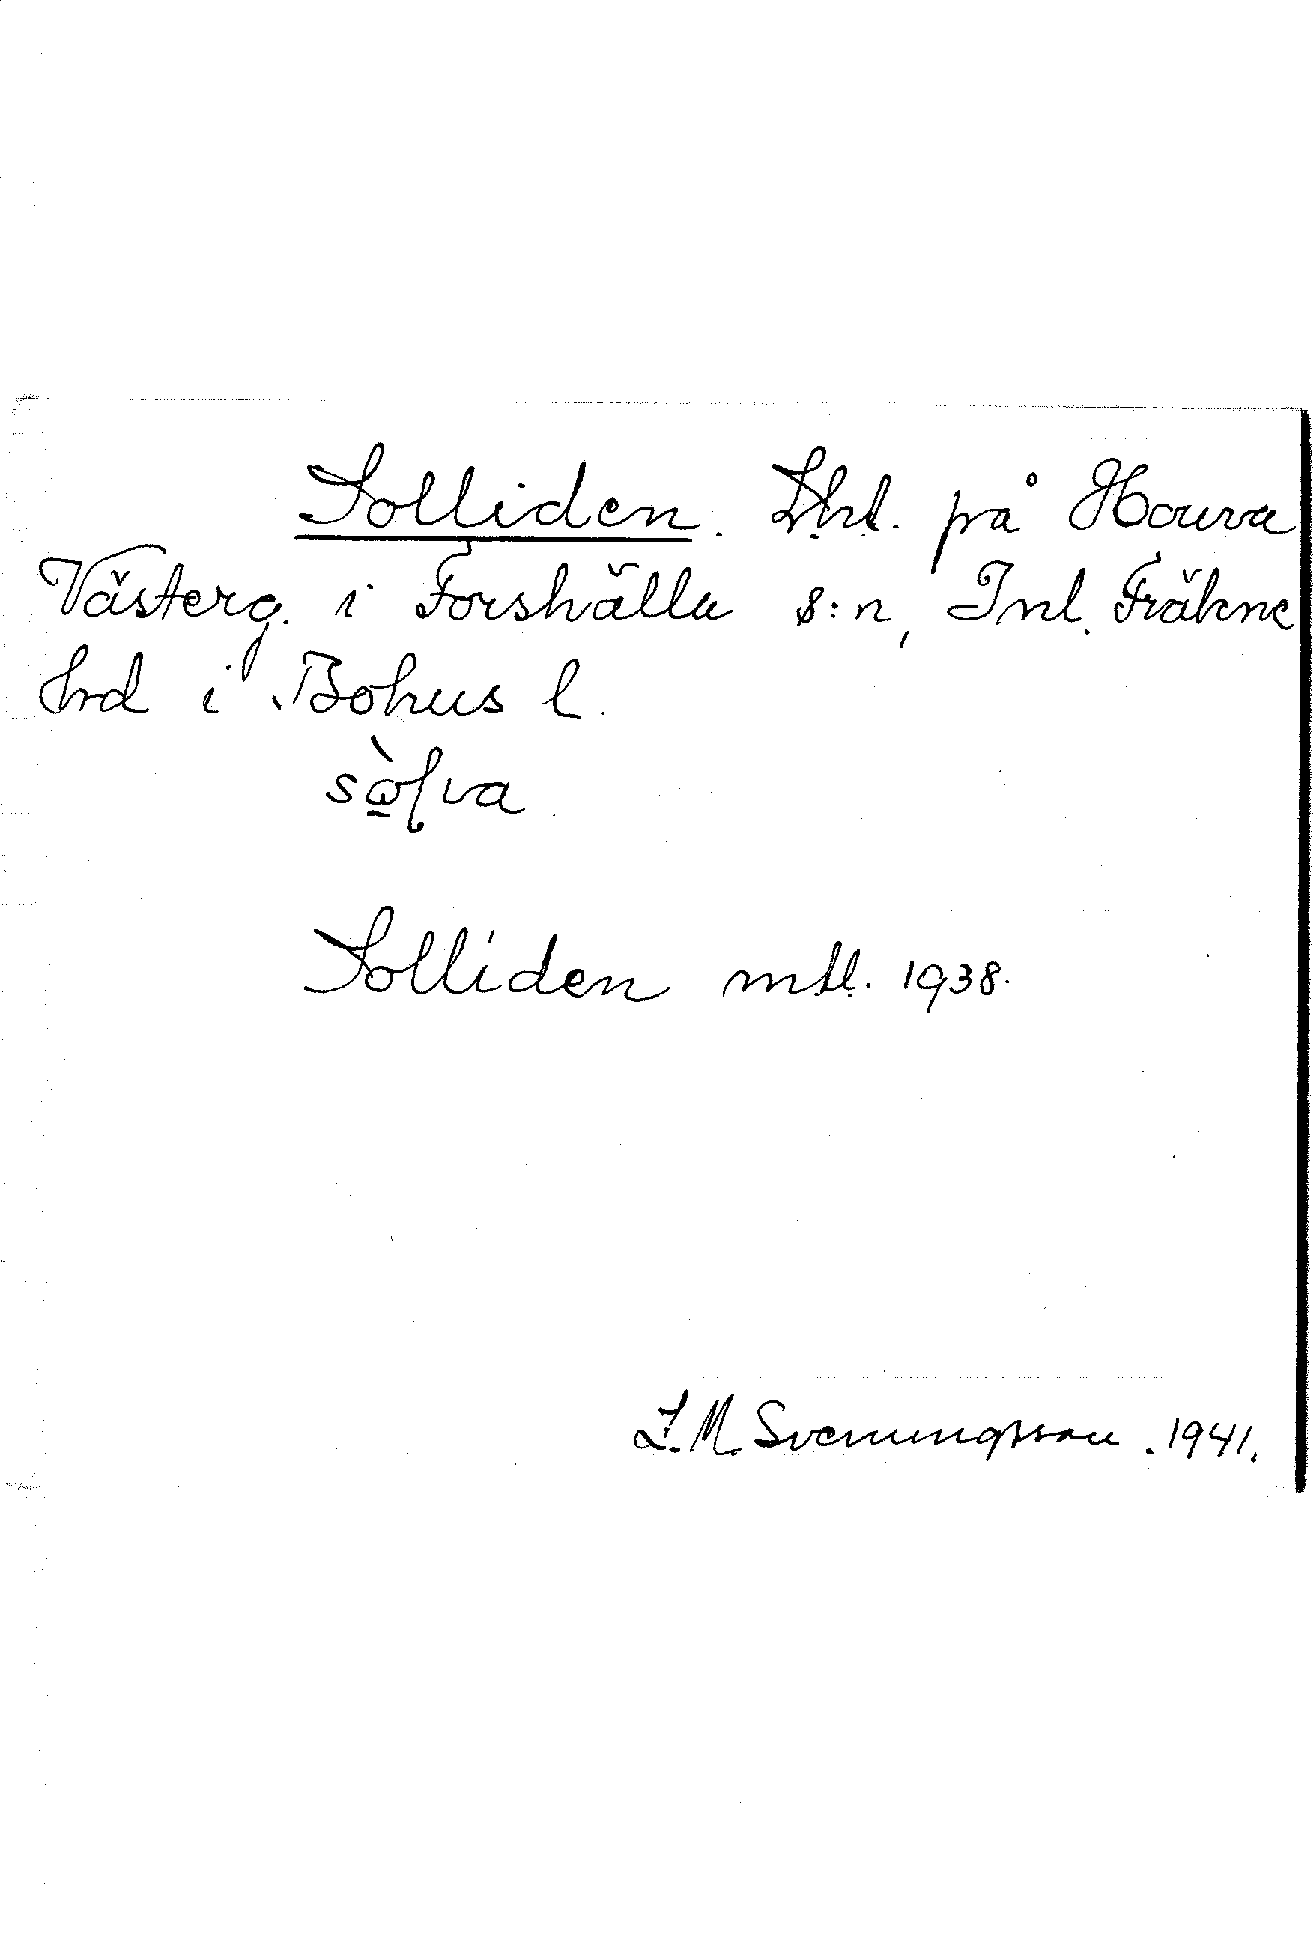 Solliden. Lht. på Houva
Västerg. i Forshälla s:n, Inl. Fräkne
hrd i Bohus l.
Solliden mtl. 1938.
L. M. Svenungsson. 1941.